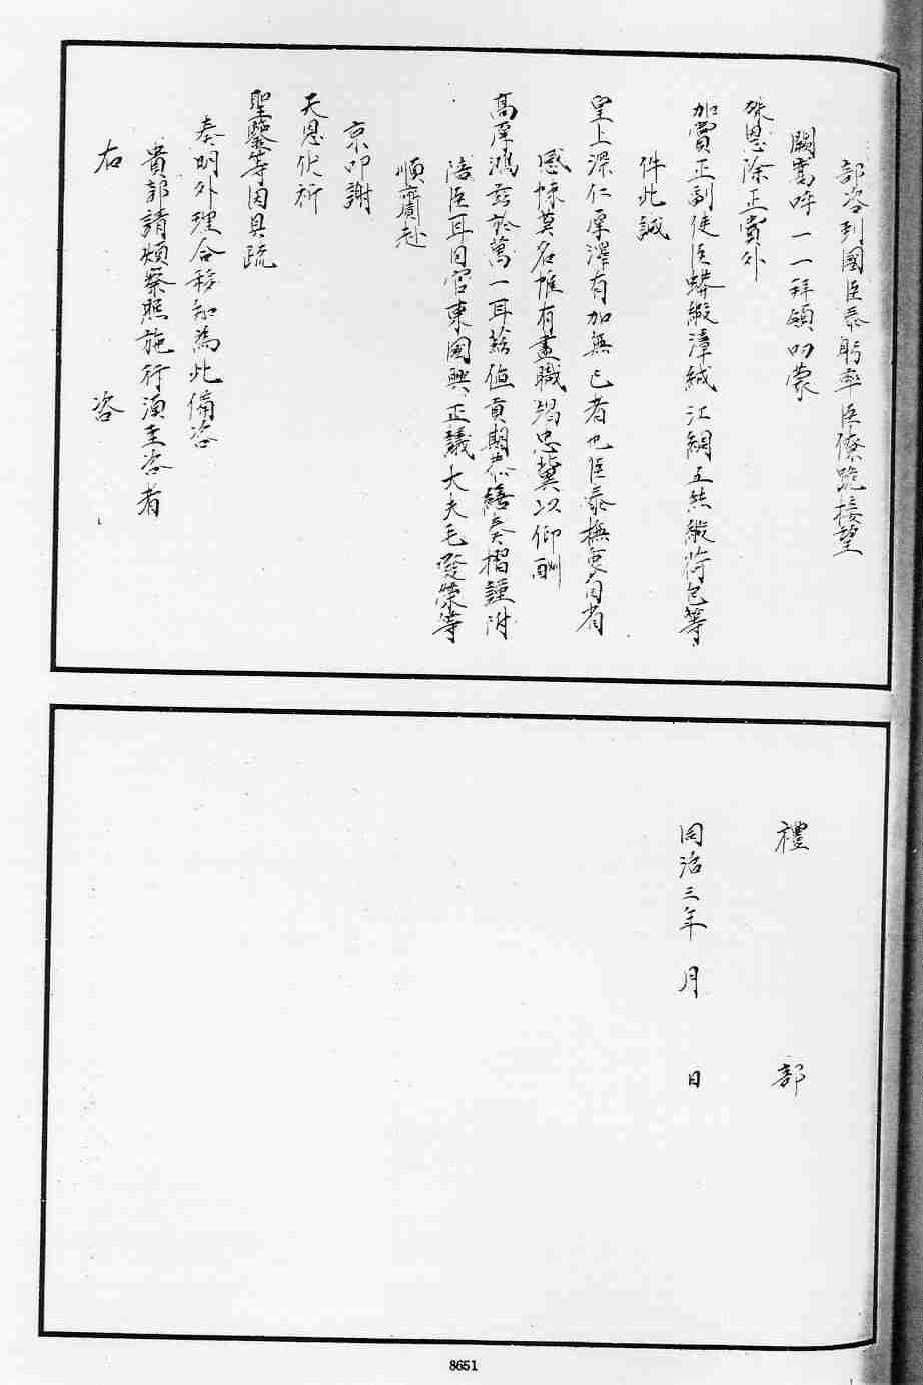 部咨到國臣泰躬率臣僚跪接望
闕嵩呼一一拜領叨蒙
殊恩除正賞外
加賞正副使臣蟒緞漳絨江綢五絲緞荷包等
件此誠
皇上深仁厚澤有加無已者也臣泰撫衷自省
感悚莫名惟有盡職竭忠冀以仰酬
高厚鴻慈於萬一耳茲值貢期恭繕奏摺謹附
陪臣耳目官東國興正議大夫毛發榮等
順齎赴
京叩謝
天恩伏祈
聖鑒等因具疏
奏明外理合移知為此備咨
貴部請煩察照施行須至咨者
右　咨
禮　部
同治三年　月　日
8651